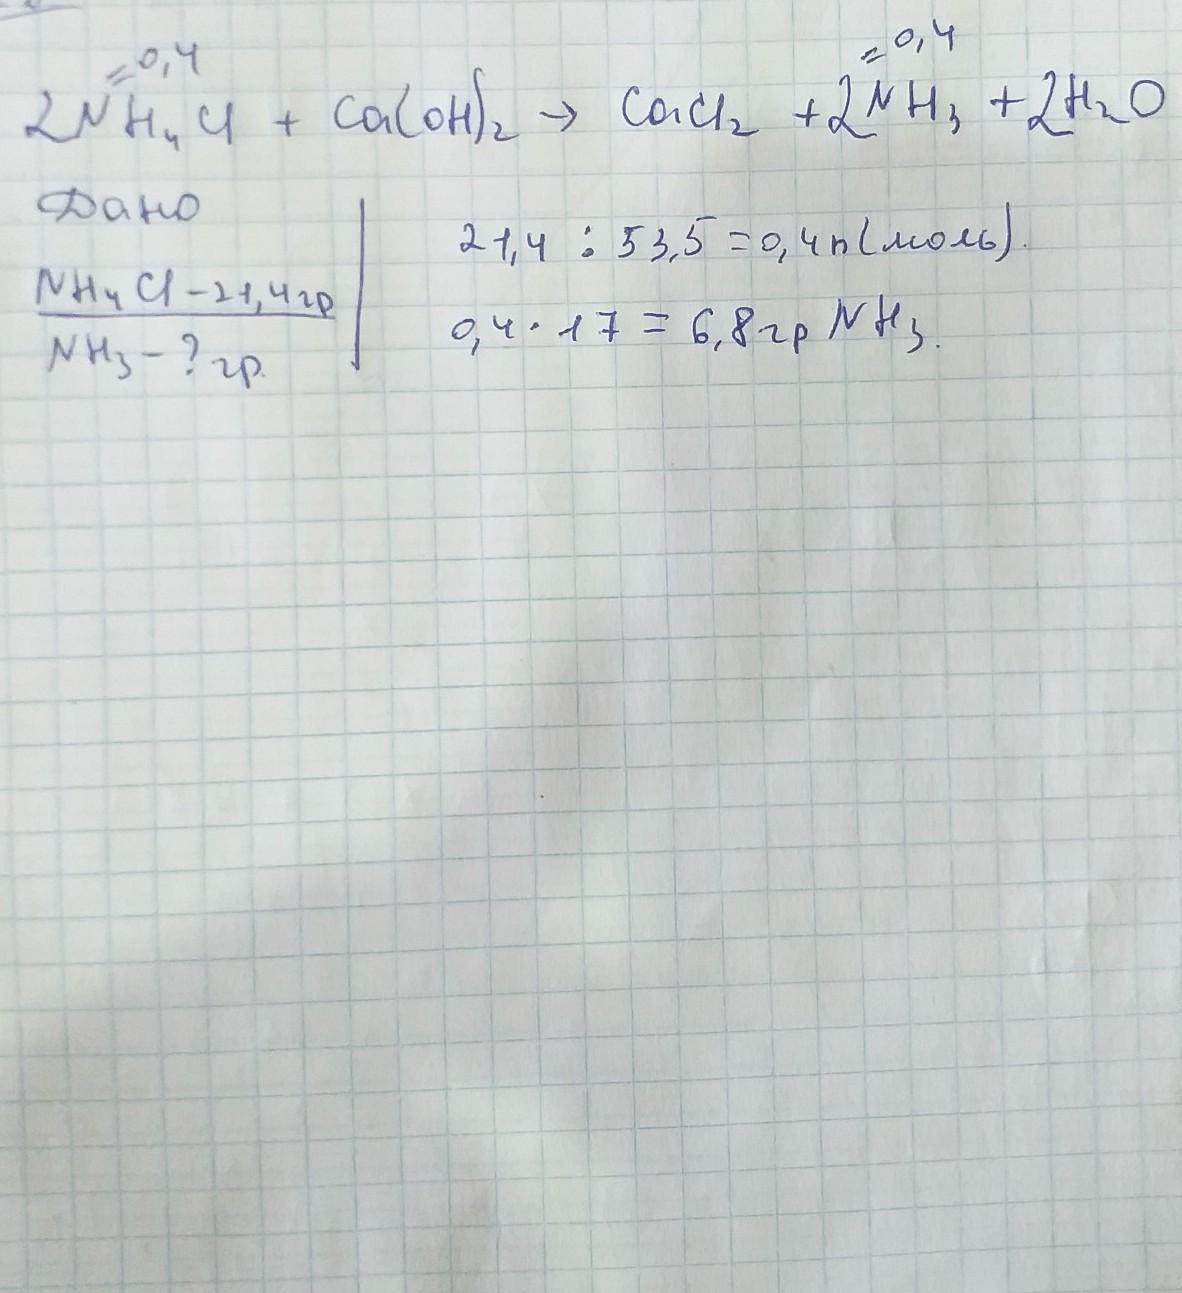 =0,4 =0,4
2NH₄Cl + Ca(OH)₂ → CaCl₂ +2NH₃ +2H₂O
Дано
NH₄Cl-21,4гр
NH₃-?гр.
21,4 : 53,5 = 0,4n(моль).
0,4·17 = 6,8гр NH₃.